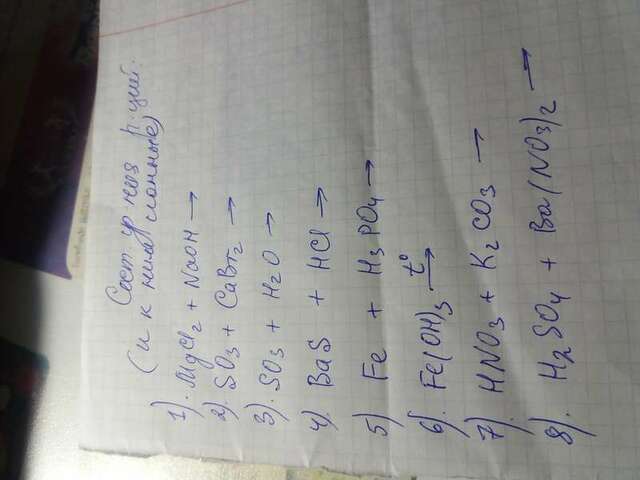 Сост. ур-ния р-ций.
(и к ним ионные)
1). MgCl2 + NaOH →
2). SO3 + CaBr2 →
3). SO3 + H2O →
4). BaS + HCl →
5) Fe + H3PO4 →
6). Fe(OH)3 t° →
7). HNO3 + K2CO3 →
8). H2SO4 + Ba(NO3)2 →